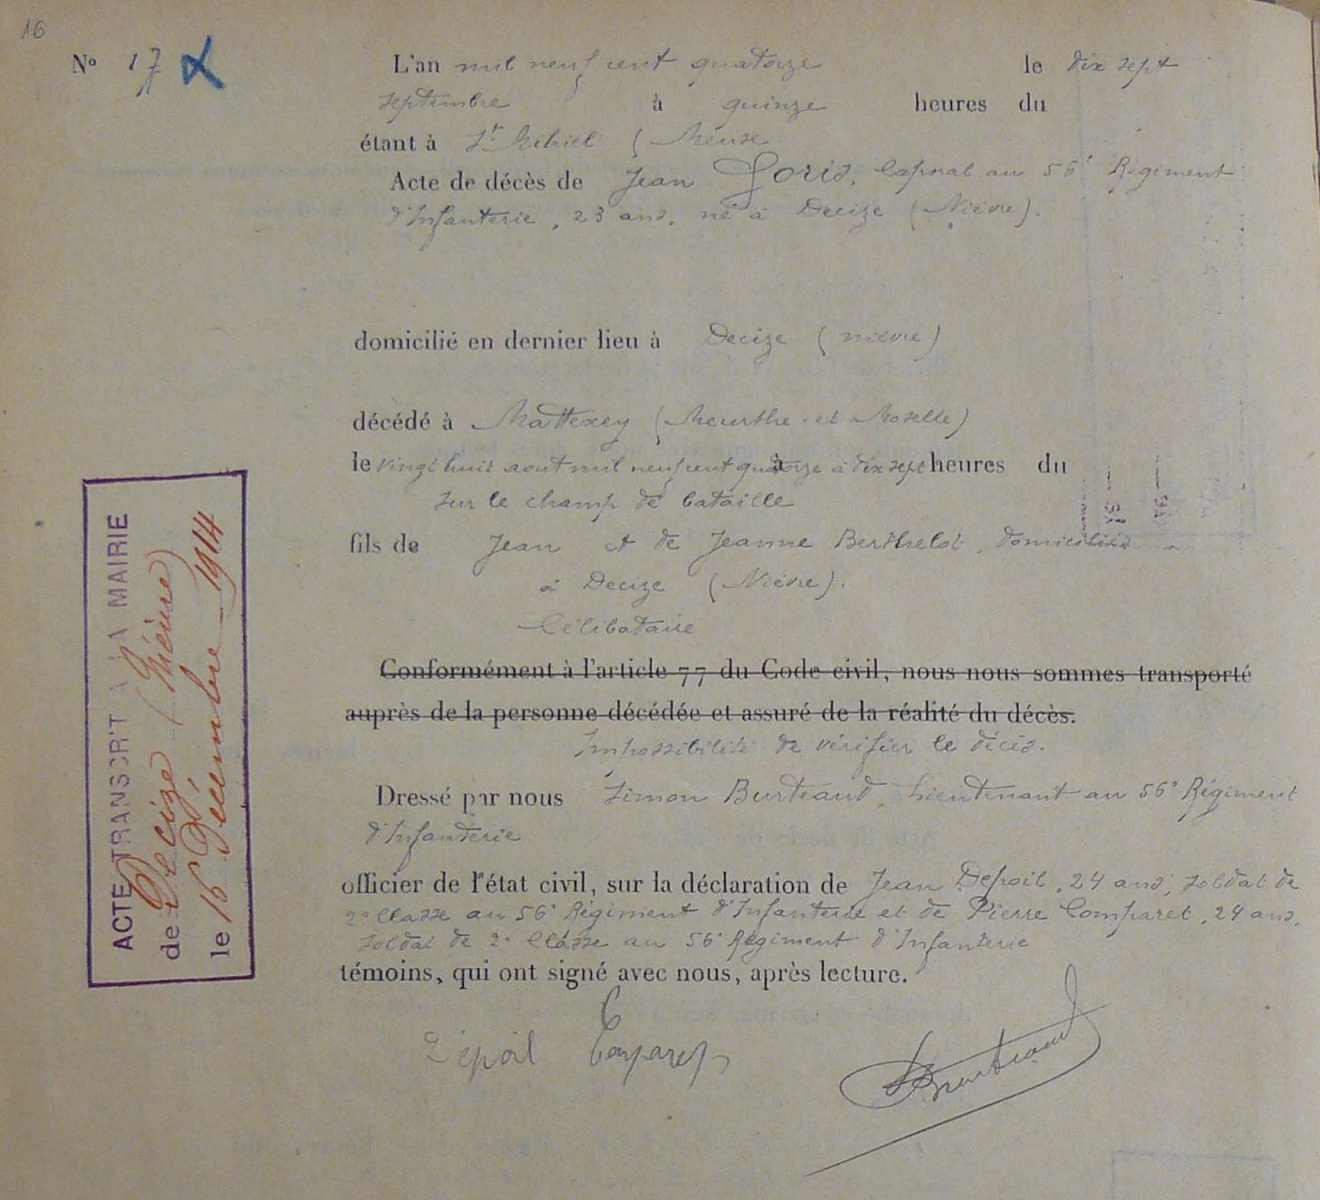 16
N° 17
L'an mil neuf cent quatorze le dix sept
septembre à quinze heures du
étant à St Mihiel (Meuse
Acte de décès de Jean Goris, Caporal au 56e Régiment
d'Infanterie, 23 ans, né à Decize (Nièvre).
domicilié en dernier lieu à Decize (nièvre)
décédé à Mattexey (Meurthe et Moselle)
le vingt huit aout mil neuf cent quatorze à dix sept heures du
sur le champ de bataille
fils de Jean et de Jeanne Berthelot, domiciliés
à Decize (Nièvre).
Célibataire
Conformément à l'article 77 du Code civil, nous nous sommes transporté
auprès de la personne décédée et assuré de la réalité du décès.
Impossibilité de vérifier le décès.
Dressé par nous Simon Burteaud, Lieutenant au 56e Régiment
d'Infanterie
officier de l'état civil, sur la déclaration de Jean Depoil, 24 ans, soldat de
2e Classe au 56e Régiment d'Infanterie et de Pierre Comparet, 24 ans,
soldat de 2e Classe au 56e Régiment d'Infanterie
témoins, qui ont signé avec nous, après lecture.
Depoil Comparet
ACTE TRANSCRIT A LA MAIRIE
de Decize (Nièvre)
le 16 Décembre 1914